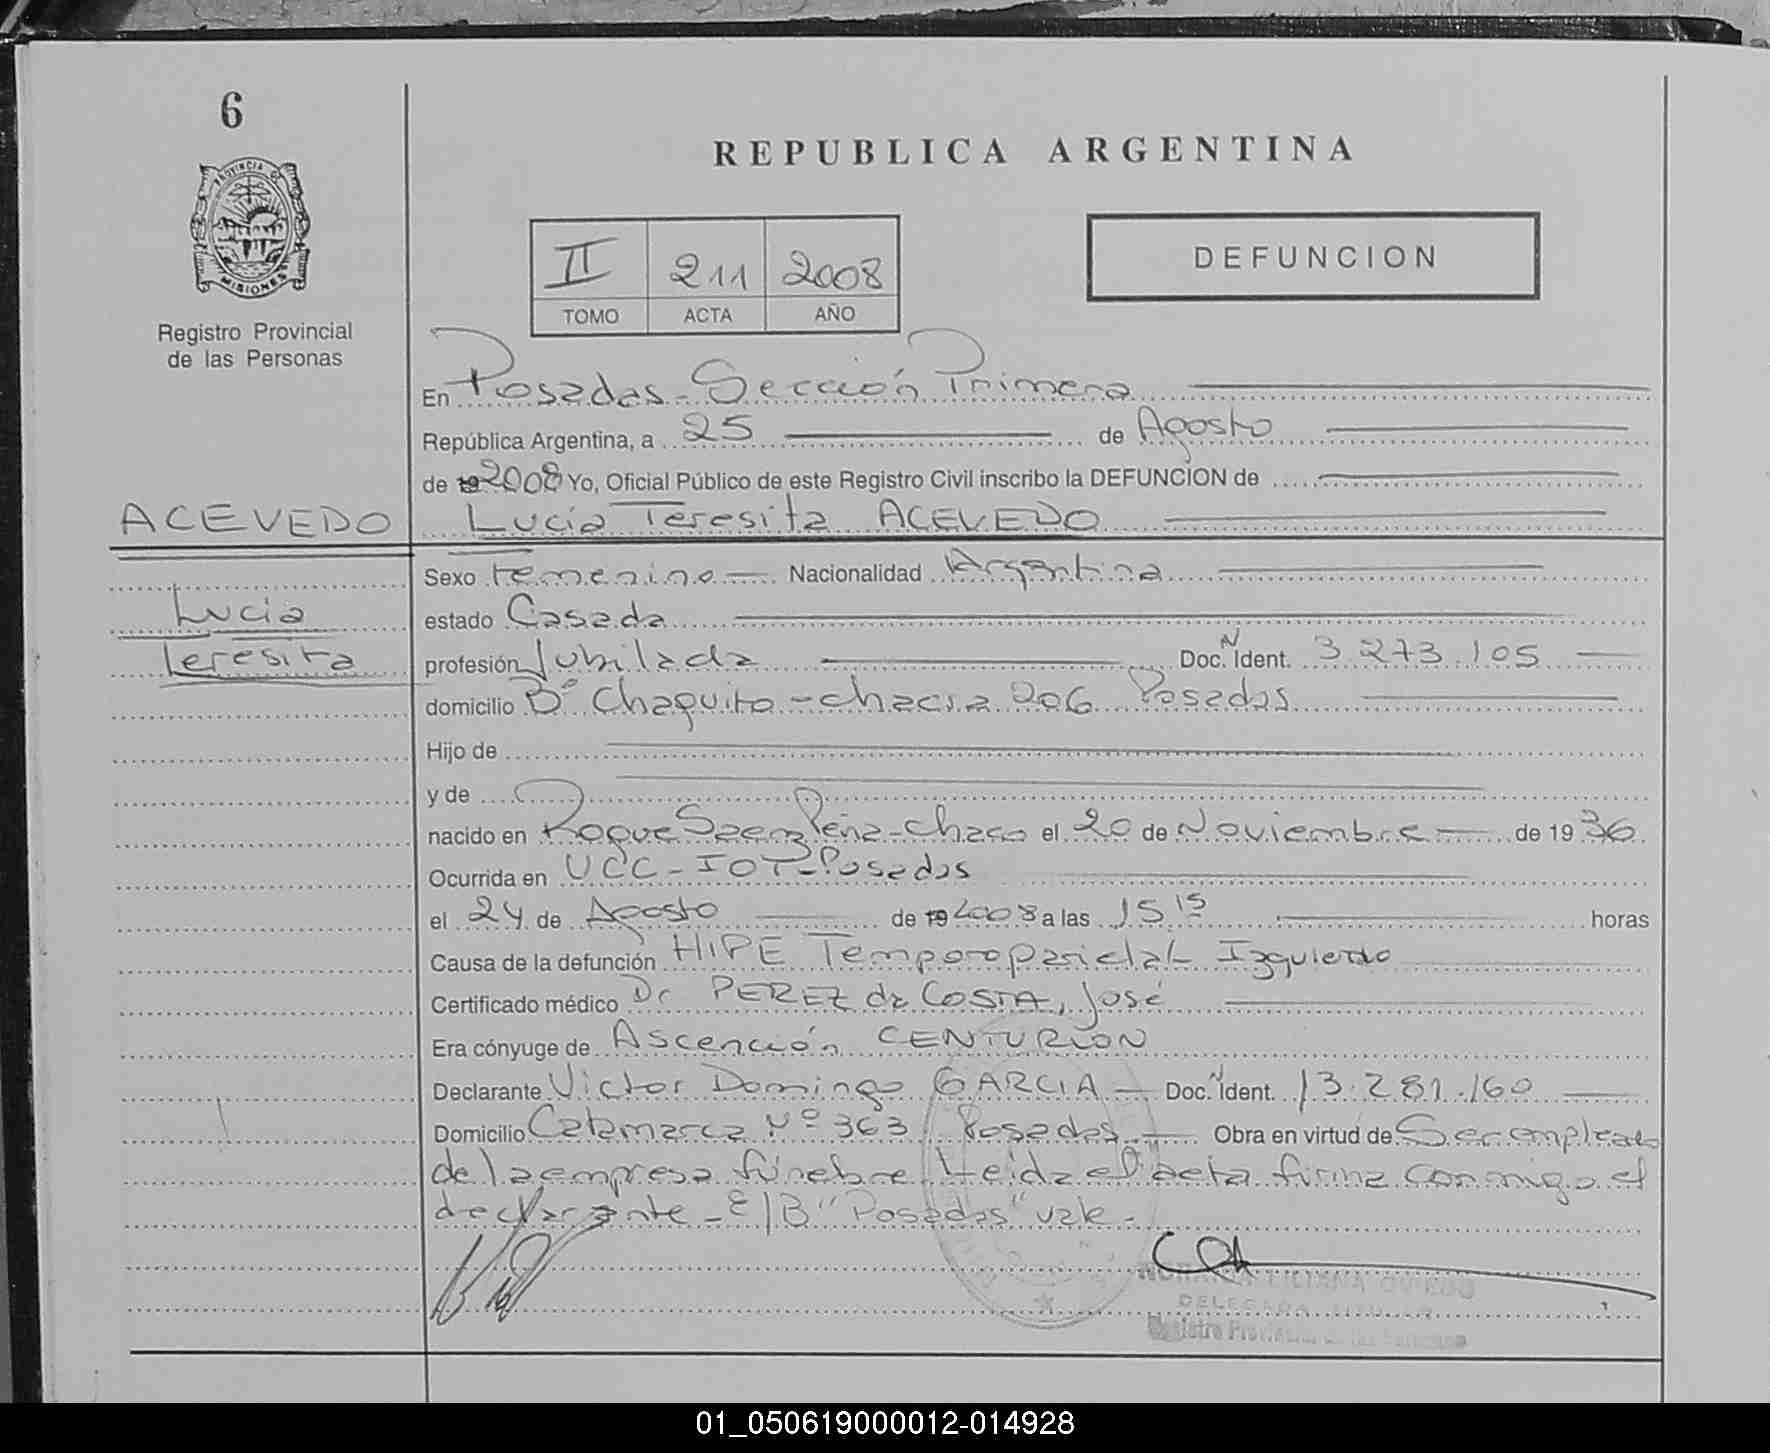 6
REPUBLICA ARGENTINA
PROVINCIA DE
MISIONES
Registro Provincial
de las Personas
II 211 2008
TOMO ACTA AÑO
DEFUNCION
En Posadas - Sección Primera
República Argentina, a 25 de Agosto
de 19 2008 Yo, Oficial Público de este Registro Civil inscribo la DEFUNCION de
ACEVEDO Lucia Teresita ACEVEDO
Sexo Femenino Nacionalidad Argentina
Lucia
estado Casada
Teresita
profesión Jubilada Doc. N Ident. 3.273.105
domicilio Bº Chaquito - chacra 206 Posadas
Hijo de
y de
nacido en Roque Saenz Peña - Chaco el 20 de Noviembre de 1936
Ocurrida en UCC - IOT - Posadas
el 24 de Agosto de 19 2008 a las 15 15 horas
Causa de la defunción HIPE Temporoparietal Izquierdo
Certificado médico Dr PEREZ da COSTA, José
Era cónyuge de Ascención CENTURION
Declarante Victor Domingo GARCIA Doc. N Ident. 13.281.160
Domicilio Catamarca Nº 363 Posadas Obra en virtud de Ser empleado
de la empresa fúnebre Leida el acta firma conmigo el
declarante - E/B "Posadas" vale -
LILIANA OVIEDO
DELEGADA TITULAR
Registro Provincial de las Personas
01_050619000012-014928